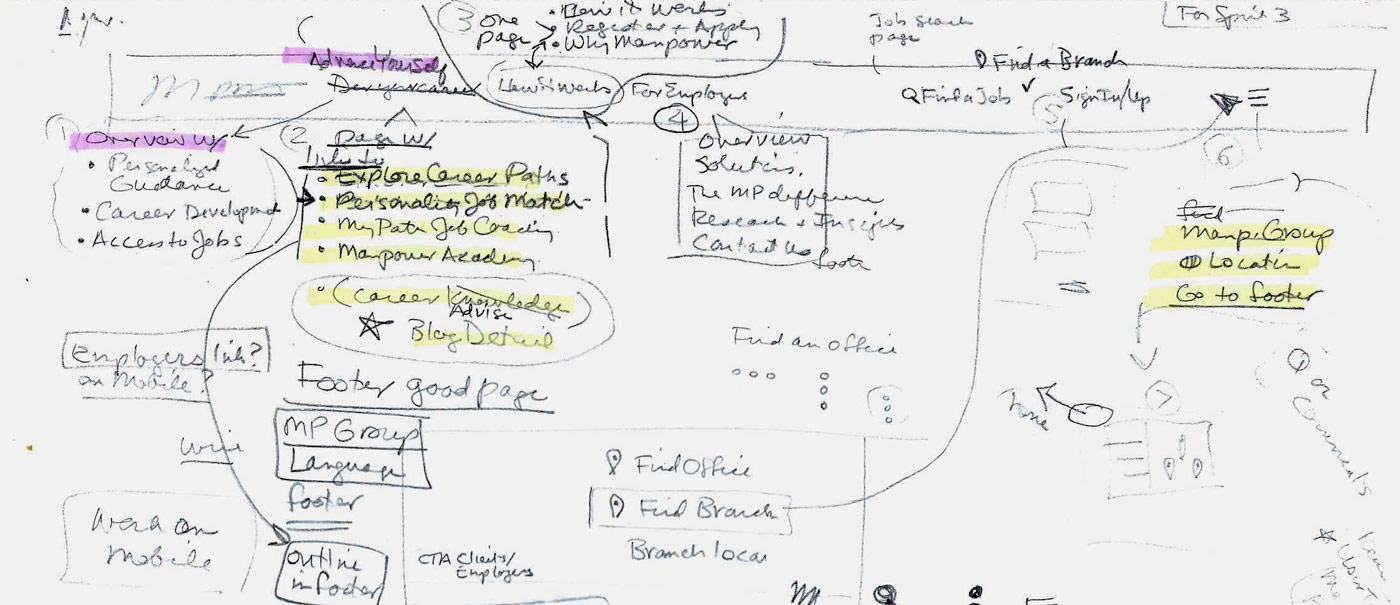 3 one page
• How it Works
• Register + Apply
• Why Manpower
Job Search page
For Sprint 3
Advance Yourself
How it works
For Employers
Find a Job
Find a Branch
Sign In/Up
1 Overview w/
• Personalized Guidance
• Career Development
• Access to Jobs
2 Page w/
links to
• Explore Career Paths
• Personality Job Match
• My Path Job Coaching
• Manpower Academy
• (Career Knowledge)
Advise
Blog Detail
4
Overview
Solutions,
The MP difference
Research + Insights
Contact us
foote
5
6
find
Manp. Group
Location
Go to footer
Employers link?
on Mobile?
Footer good page
MP Group
Language
footer
Work on
Mobile
Outline
in footer
CTA Clients/
Employers
Find an office
Find Office
Find Branch
Branch locat
7
on
Comments